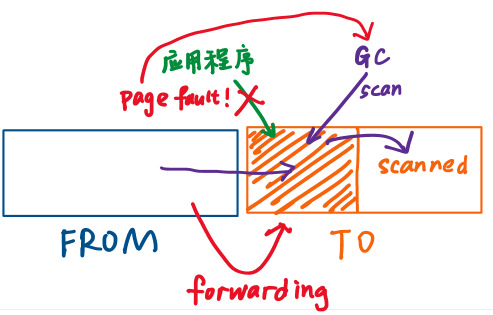 应用程序
GC
page fault!
scan
scanned
FROM
TO
forwarding